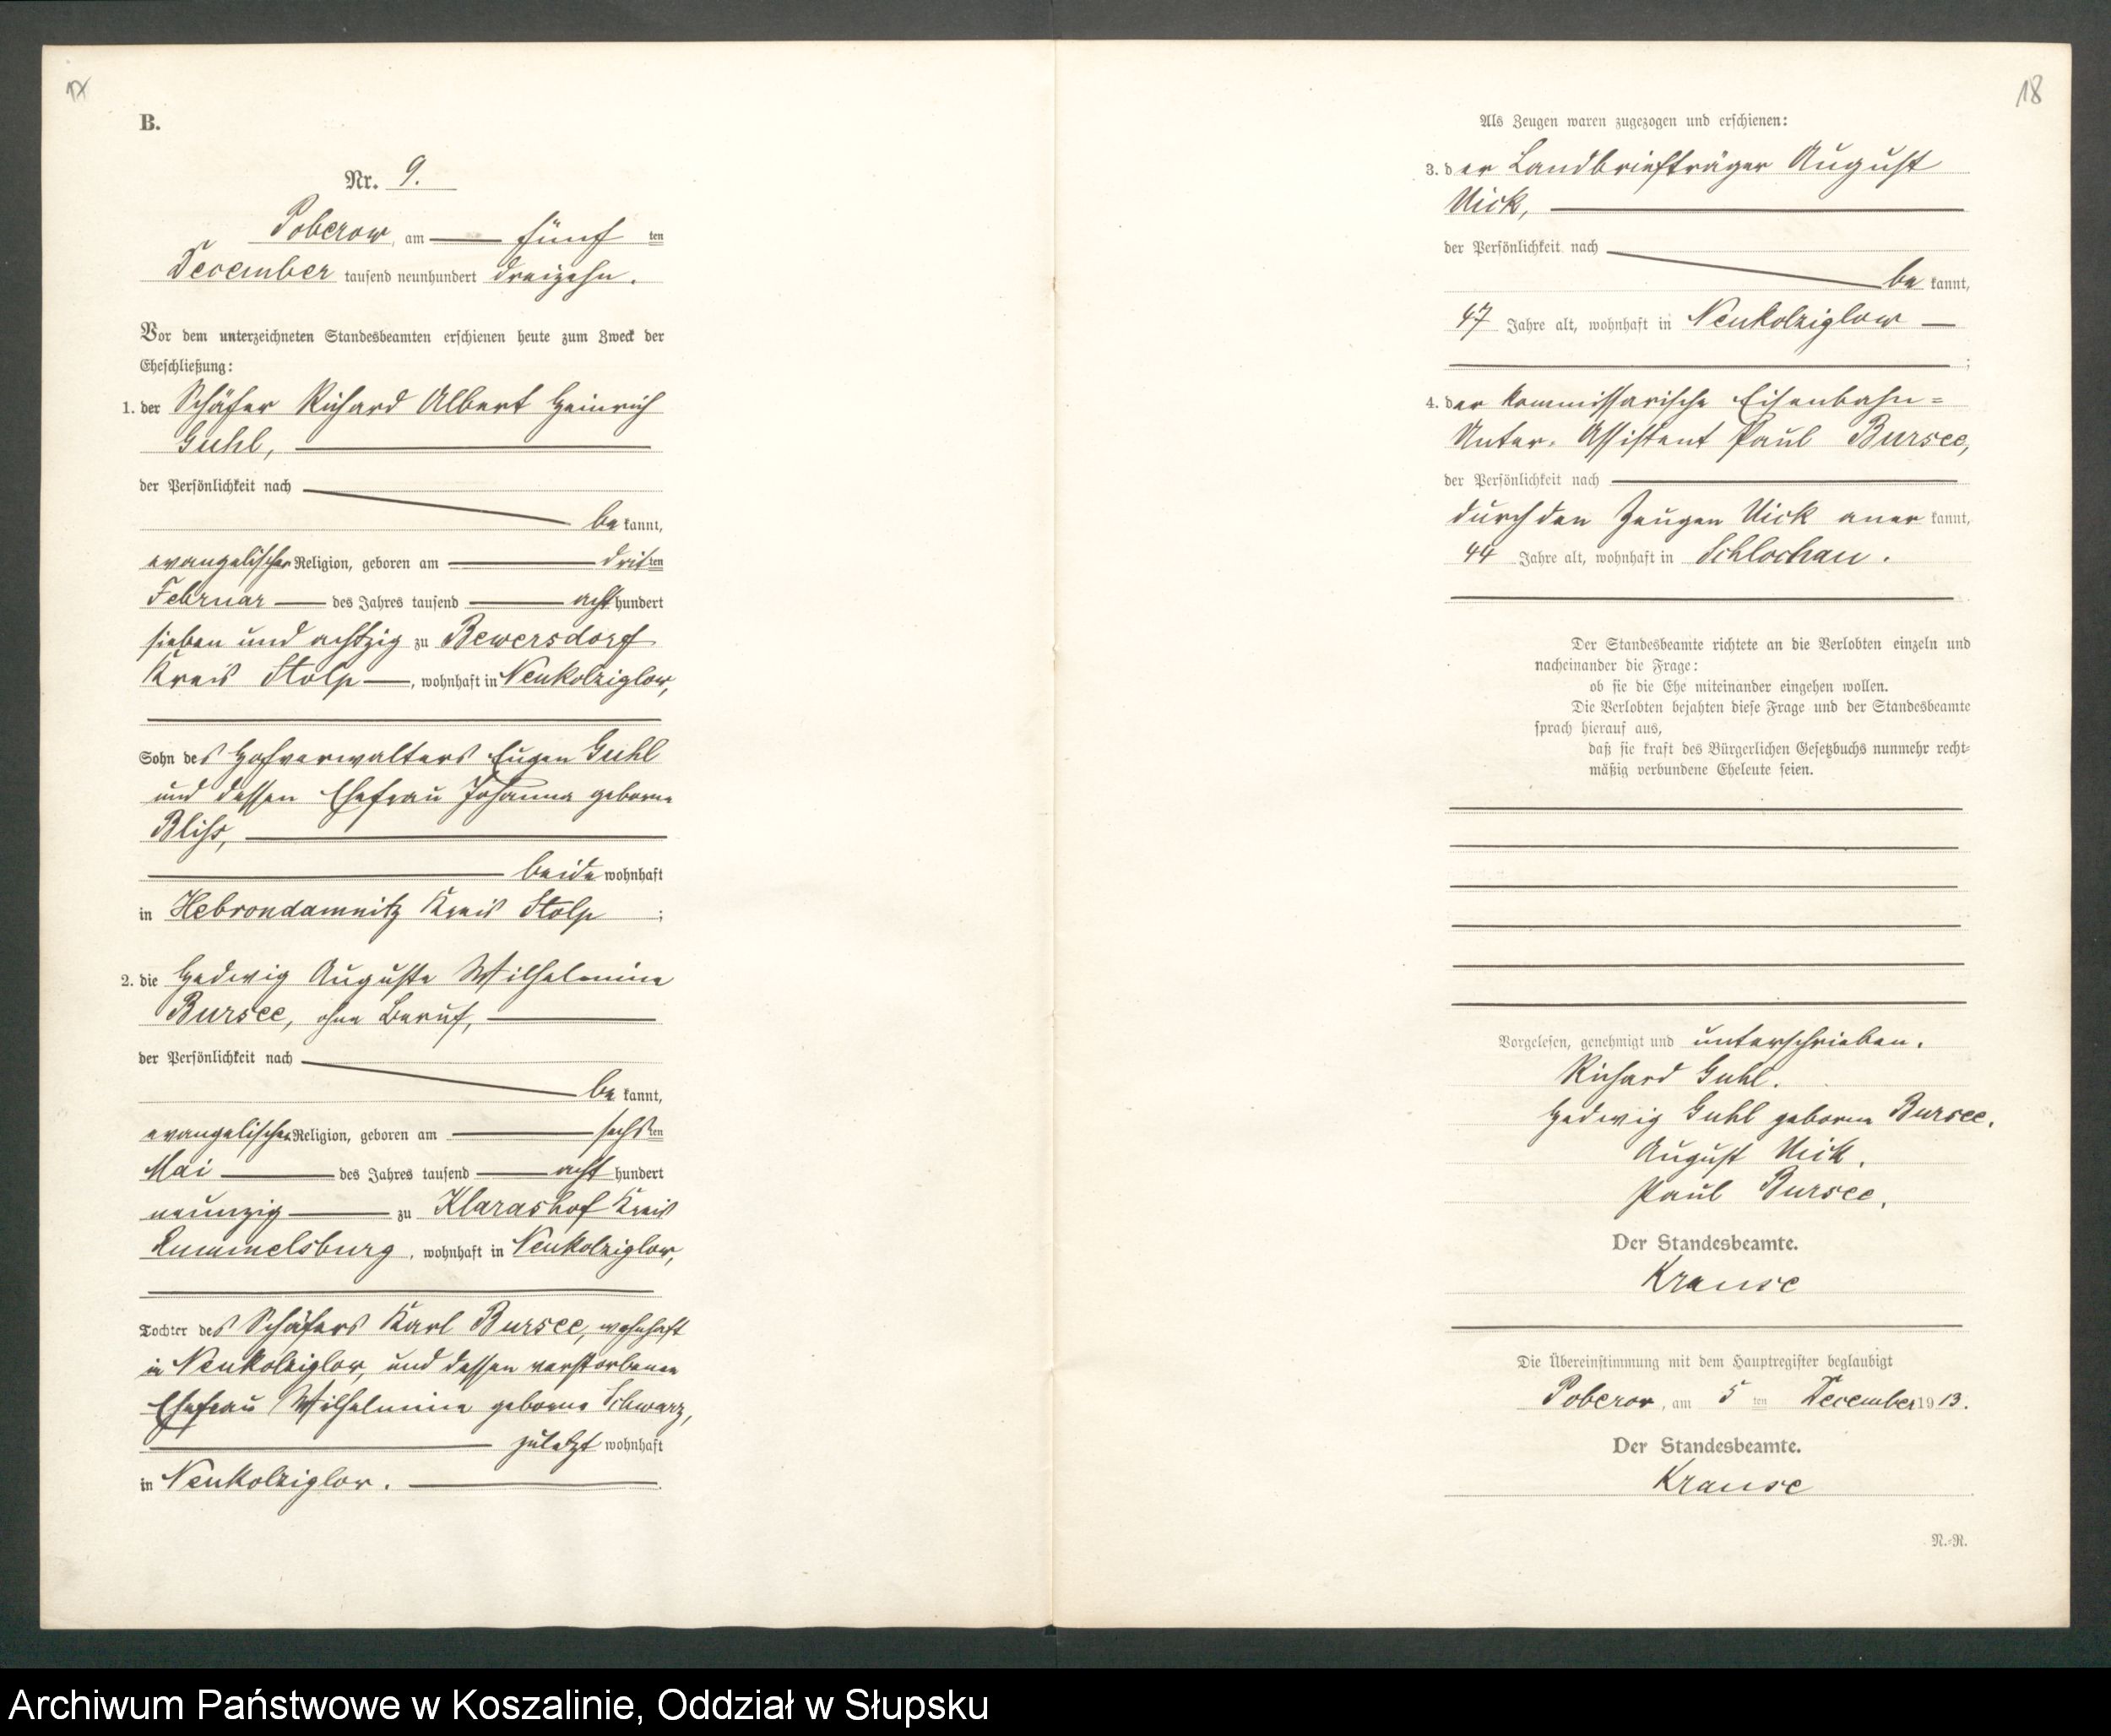 B.
Nr. 9.
Poberow, am fünf ten
December tausend neunhundert dreizehn.
Vor dem unterzeichneten Standesbeamten erschienen heute zum Zweck der
Eheschließung:
1. der Schäfer Richard Albert Heinrich
Guhl,
der Persönlichkeit nach
be kannt,
evangelischer Religion, geboren am drit ten
Februar des Jahres tausend acht hundert
sieben und achtzig zu Bewersdorf
Kreis Stolp, wohnhaft in Neukolziglow,
Sohn des Hofverwalters Eugen Guhl
und dessen Ehefrau Johanna geborne
Bliß,
beide wohnhaft
in Hebrondamnitz Kreis Stolp ;
2. die Hedwig Auguste Wilhelmine
Bursee, ohne Beruf,
der Persönlichkeit nach
be kannt,
evangelischer Religion, geboren am sechs ten
Mai des Jahres tausend acht hundert
neunzig zu Klarashof Kreis
Rummelsburg, wohnhaft in Neukolziglow,
Tochter des Schäfers Karl Bursee, wohnhaft
in Neukolziglow, und dessen verstorbenen
Ehefrau Wilhelmine geborne Schwarz,
zuletzt wohnhaft
in Neukolziglow.
18
Als Zeugen waren zugezogen und erschienen:
3. der Landbriefträger August
Uick,
der Persönlichkeit nach
be kannt,
47 Jahre alt, wohnhaft in Neukolziglow
;
4. der kommissarische Eisenbahn=
Unter-Assistent Paul Bursee,
der Persönlichkeit nach
durch den Zeugen Uick aner kannt,
44 Jahre alt, wohnhaft in Schlochau.
Der Standesbeamte richtete an die Verlobten einzeln und
nacheinander die Frage:
ob sie die Ehe miteinander eingehen wollen.
Die Verlobten bejahten diese Frage und der Standesbeamte
sprach hierauf aus,
daß sie kraft des Bürgerlichen Gesetzbuchs nunmehr recht=
mäßig verbundene Eheleute seien.
Vorgelesen, genehmigt und unterschrieben.
Richard Guhl.
Hedwig Guhl geborne Bursee.
August Uick.
Paul Bursee.
Der Standesbeamte.
Krause
Die Übereinstimmung mit dem Hauptregister beglaubigt
Poberow, am 5 ten December 1913.
Der Standesbeamte.
Krause
N.-R.
Archiwum Państwowe w Koszalinie, Oddział w Słupsku